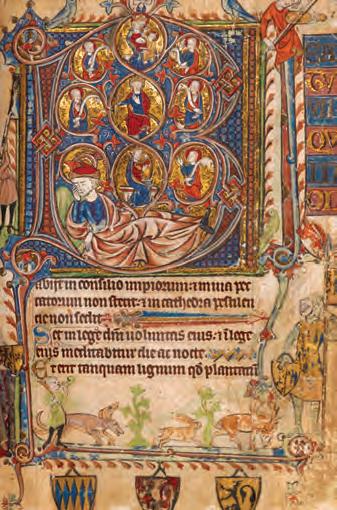 abijt in consilio impiorum: ⁊ in uia pec
catorum non stetit: ⁊ in cathedra pestilen
cie non sedit.
Set in lege dñi uoluntas eius: ⁊ ī lege
eius meditabitur die ac nocte.
Et erit tanquam lignum qđ plantatū